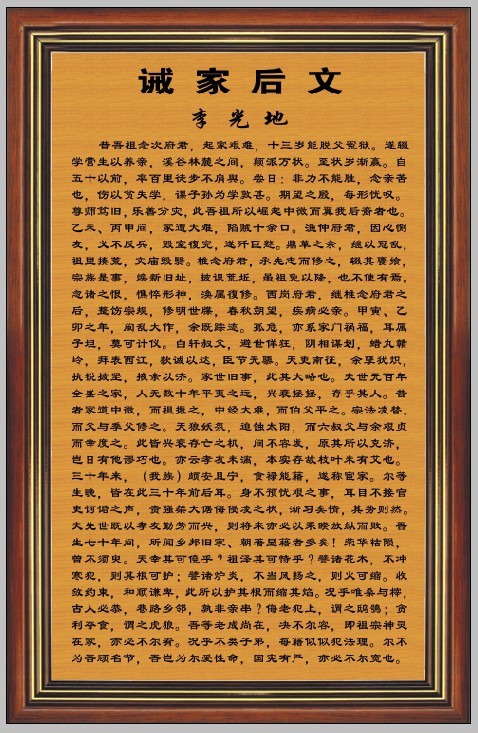 诫家后文
李光地
昔吾祖念次府君，起家艰难，十三岁能脱父冤狱。遂辍
学营生以养亲，溪谷林麓之间，颠沛万状。至状岁渐赢。自
五十以前，率百里徒步不肩舆。尝曰：非力不能胜，念亲苦
也，伤以贫失学，课子孙为学致甚。期望之殷，每形忧叹。
尊师笃旧，乐善分灾，此吾祖所以崛起中微而冀我后裔者也。
乙未、丙甲间，家遭大难，陷贼十余口。渔仲府君，因心恻
友，义不反兵，毁室复完，遂歼巨憝。鼎革之余，继以寇乱，
祖垣榛荒，文庙毁
宗族是事，焕新旧址，披误荒坵，虽祖免以降，也不使有
忿诸之恨，憔悴形神，涣属復修。西岗府君，继惟念府君之
后，整饬宗规，修明世牒，春秋朔望，疾病必亲。甲寅、乙
卯之年，闽乱大作，余既踪迹。孤危，亦系家门祸福，耳属
于垣，莫可计议。白轩叔父，避世佯狂，阴相谋划，蜡丸赣
岭，拜表西江，款诚以达，臣节无亏。天吏南征，余孽犹炽，
家世旧事，此其大略也。大世无百年
全盛之家，人无数十年平夷之运，兴衰
者家道中微，而祖振之，中经大难，而伯父平之。宗法凌替，
而父与季父修之。天狼妖氛，迫蚀太阳，而六叔父与余艰贞
而幸度之。此皆兴衰存亡之机，间不容发，原其所以克济，
岂日有他谬巧也。亦云孝友未漓，本实存故枝叶未有艾也。
三十年来，（我族）颇安且宁，食禄能籍，遂称宦家。尔等
生晚，皆在此三十年前后耳。身不预忧艰之事，耳目不接官
吏诃诟之声，贵强桀大侮侮侵凌之状，渐习矣惰，其务则然。
大先世既以孝友勤劳而兴，则将来亦必以乖睽放纵而败。吾
生七十年间，所闻乡邦旧家、朝著显籍者多矣！荣华枯陨，
曾不须臾。天幸其可侥乎？祖泽其可恃乎？譬诸花木，不冲
寒犯，则其根可护；譬诸炉炎，不当风扬之，则火可缩。收
敛约束，和顺谦卑，此所以护其根而缩其焰。况乎唯桑与梓，
古人必恭，巷路乡邻，孰非亲串？侮老犯上，谓之鸱鸮；贪
利夺食，谓之虎狼。吾等老成尚在，决不尔容，即祖宗神灵
在冢，亦必不尔宥。况乎不类子弟，每藉似似犯法理。尔不
为吾顾名节，吾岂为尔爱性命，国宪有严，亦必不尔宽也。